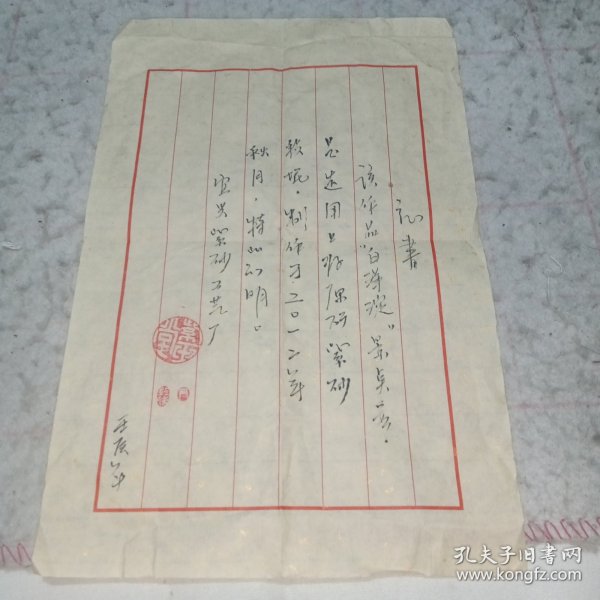 证书
该作品"白洋淀"景点壶.
是选用上好原矿紫砂
制作于.二〇一二年
秋月.特此证明。
宜兴紫砂工艺厂
壬辰年
孔夫子旧书网
www.kongfz.com